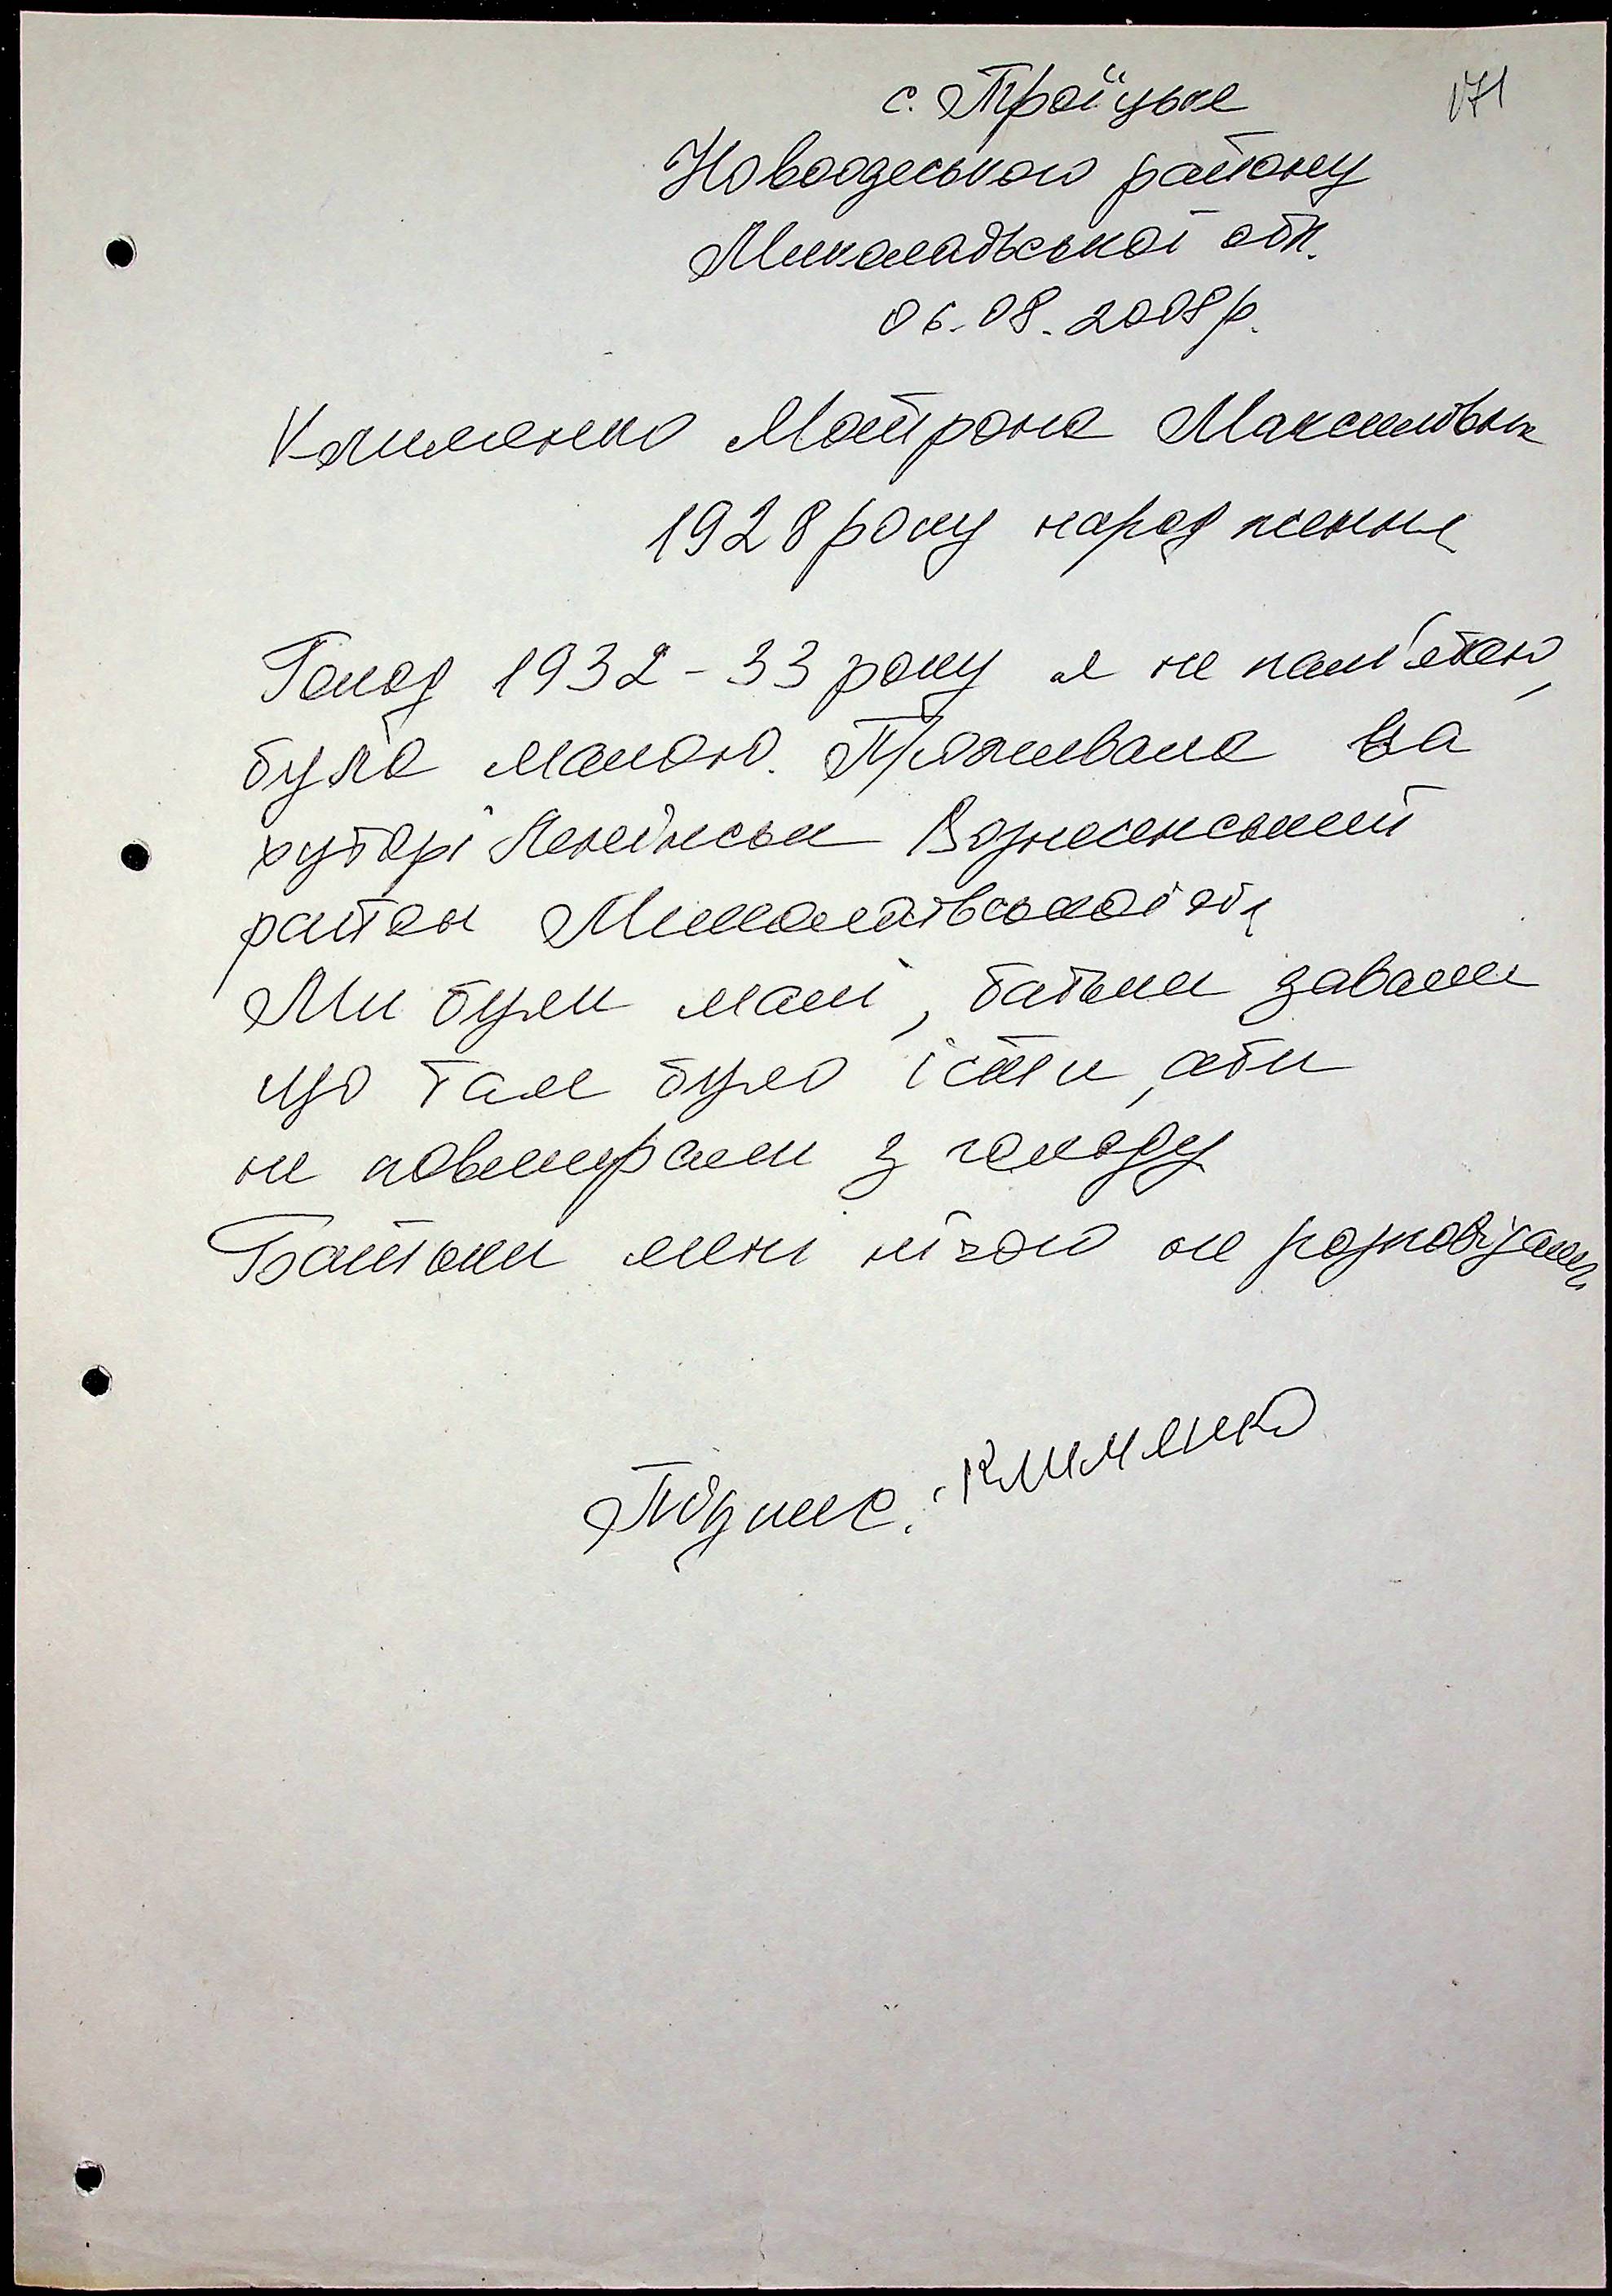 с. Троїцьке
171
Новоодеського району
Миколаївської обл.
06.08.2008р.
Клименко Мотрона Максимовна
1928 року народження
Голод 1932-33 року я не пам'ятаю,
була малою. Проживала на
хуторі Ленінськ Вознесенський
район Миколаївської обл
Ми були малі, батьки давали
що там було їсти, аби
не повмирали з голоду
Батьки мені нічого не розповідали
Підпис: Клименко